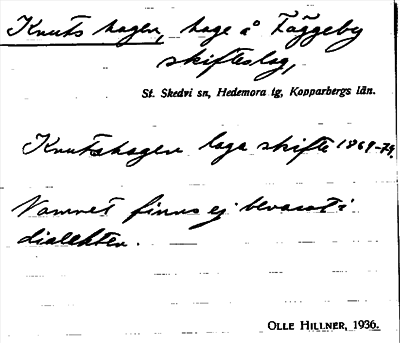 Knuts hagen, hage å Fäggeby
skifteslag,
St. Skedvi sn, Hedemora tg, Kopparbergs län.
Knutshagen laga skifte 1869-74.
Namnet finns ej bevarat i
dialekten.
OLLE HILLNER, 1936.